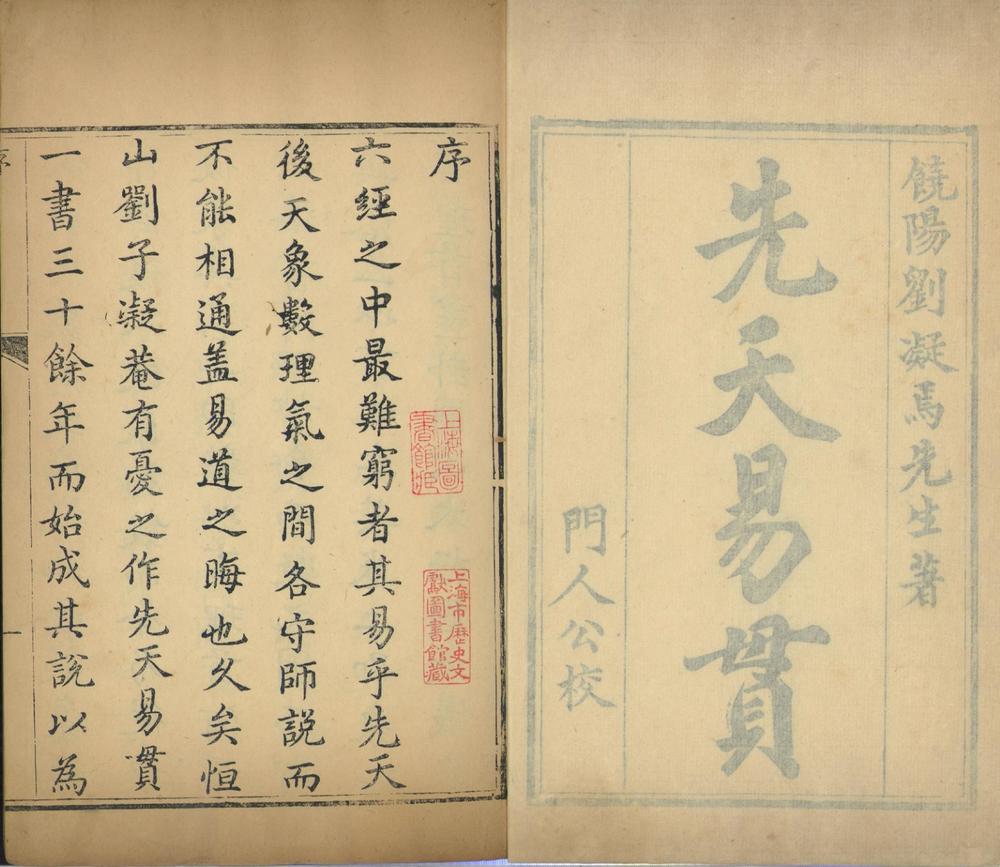 饒陽劉凝焉先生著
先天易貫
門人公校
序
六經之中最難窮者其易乎先天
後天象數理氣之間各守師說而
不能相通盖易道之晦也久矣恒
山劉子凝菴有憂之作先天易貫
一書三十餘年而始成其說以為
上海圖
書館藏
上海市歷史文
獻圖書館藏
序
一